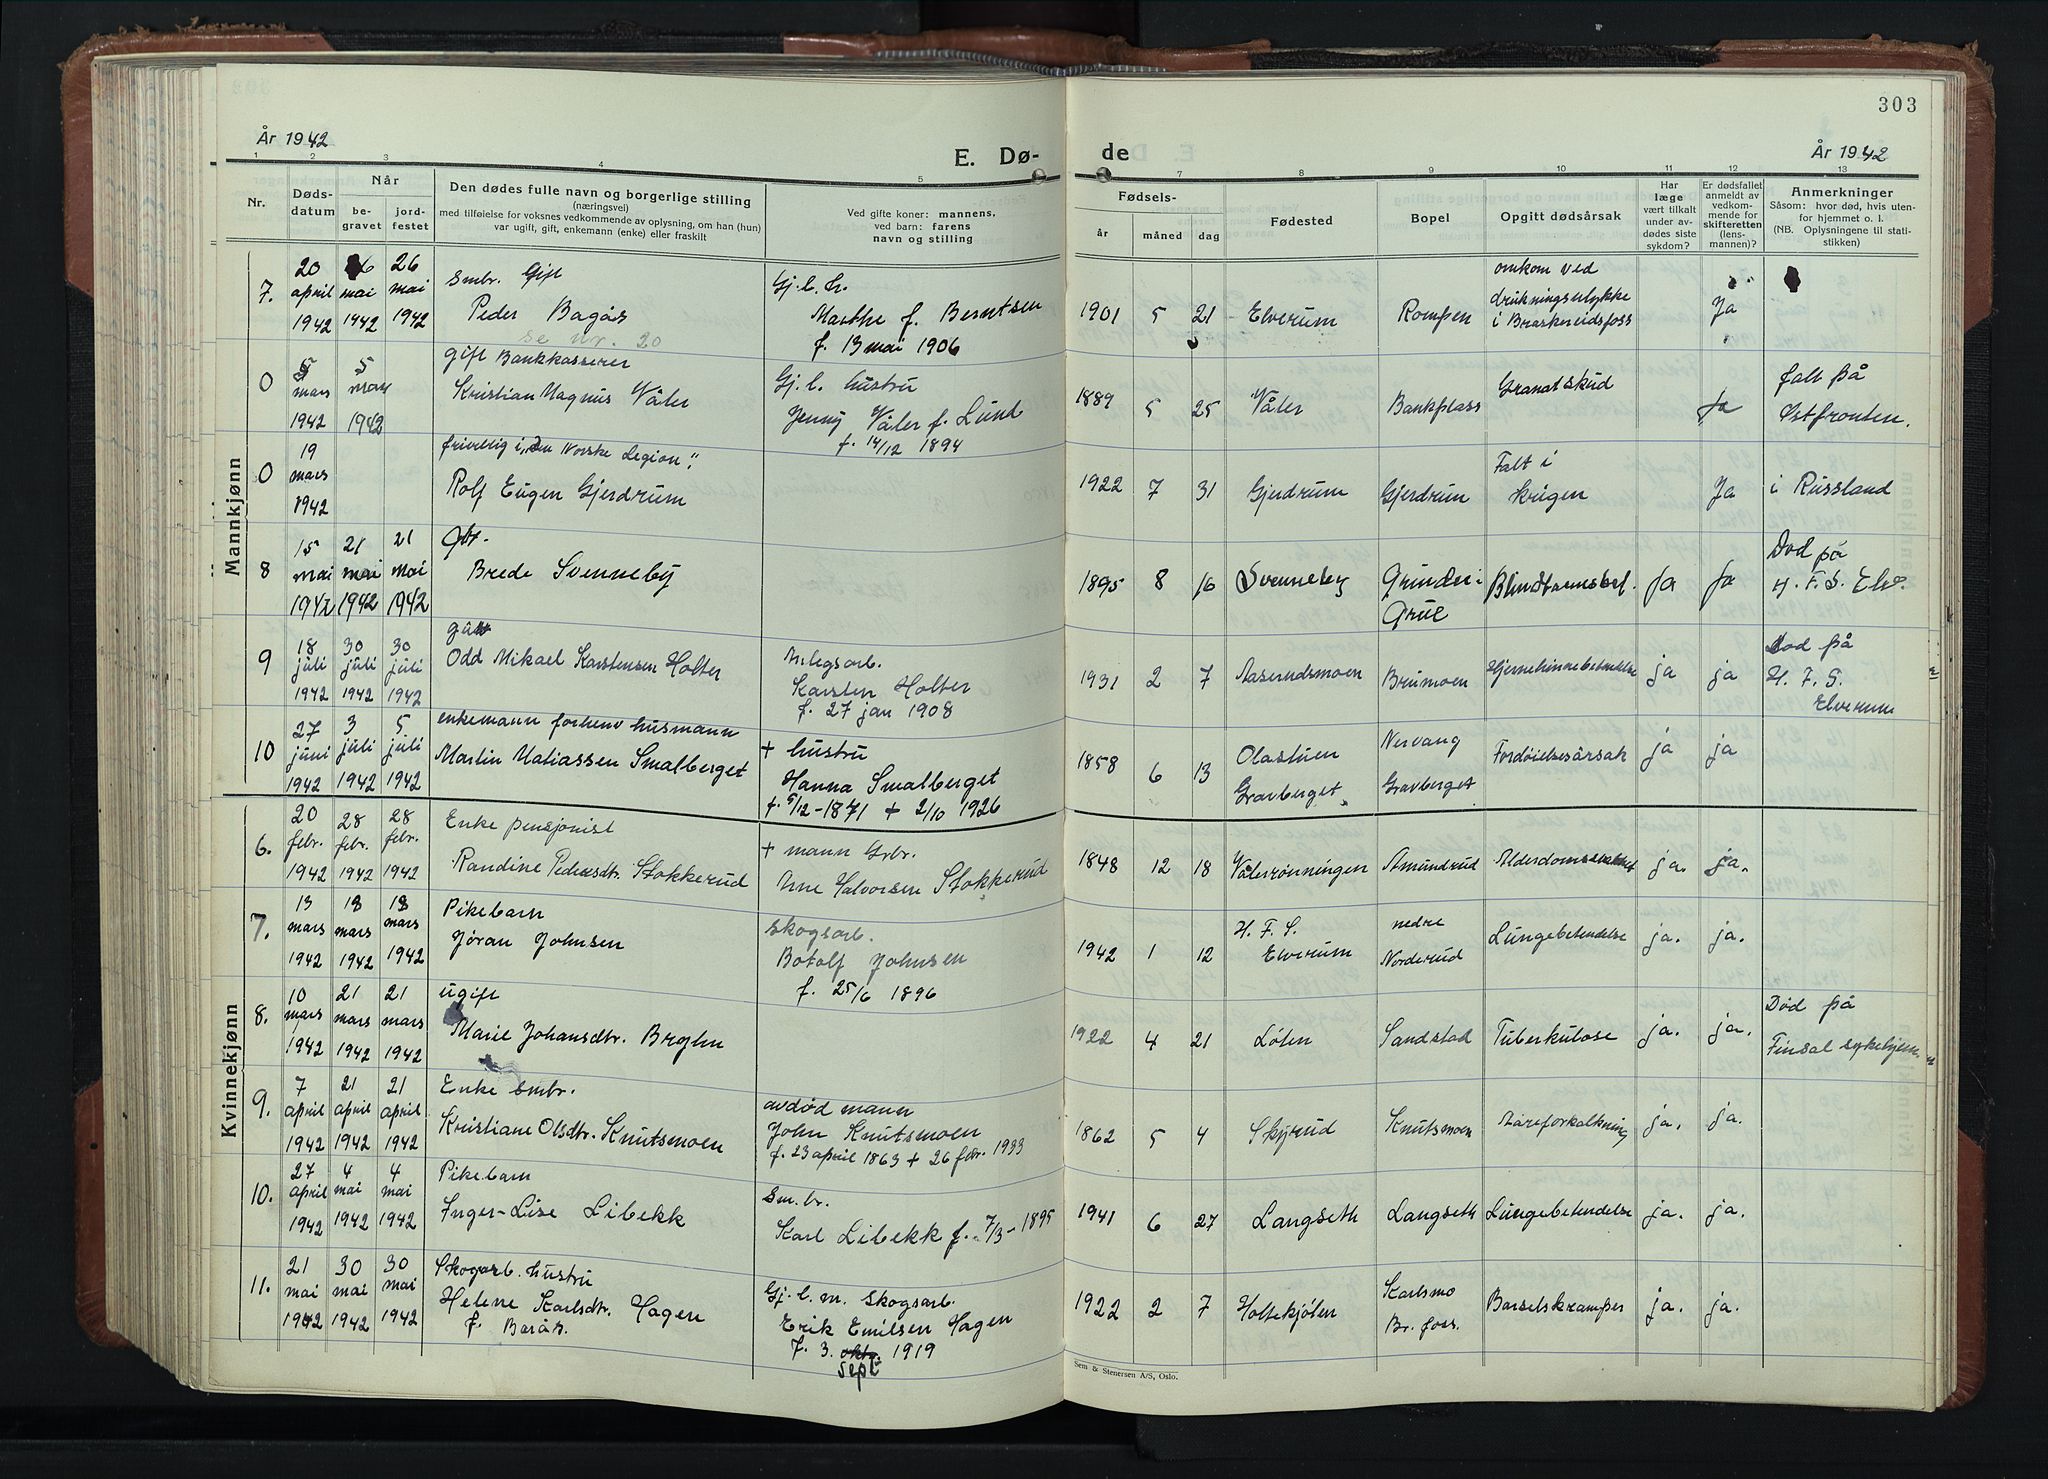 303
År 1942
E. Dø-
de
År 1942
1 2 3 4 5 7 8 9 10 11 12 13
Nr.
Døds-
datum
Når
be-
gravet
jord-
festet
Den dødes fulle navn og borgerlige stilling
(næringsvei)
med tilføielse for voksnes vedkommende av oplysning, om han (hun)
var ugift, gift, enkemann (enke) eller fraskilt
Ved gifte koner: mannens,
ved barn: farens
navn og stilling
Fødsels-
år måned dag
Fødested
Bopel
Opgitt dødsårsak
Har
læge
vært tilkalt
under av-
dødes siste
sykdom?
Er dødsfallet
anmeldt av
vedkom-
mende for
skifteretten
(lens-
mannen)?
Anmerkninger
Såsom: hvor død, hvis uten-
for hjemmet o. l.
(NB. Oplysningene til stati-
stikken)
Mannkjønn
7. 20 april 1942 26 mai 1942 26 mai 1942
Smbr. Gift
Peder Bagås
se nr. 20
Gj. l. h.
Marthe f. Berntsen
f. 13 mai 1906
1901 5 21 Elverum Rompen
omkom ved
drukningsulykke
i Braskereidsfoss
Ja
0 5 mars 1942 5 may 1942
gift Bankkasserer
Kristian Magnus Våler
Gj. l. hustru
Jenny Våler f. Lund
f. 14/12 1894
1889 5 25 Våler Bankplass Granatskud Ja
falt på
Østfronten.
0 19 mars 1942
frivillig i "Den Norske Legion",
Rolf Eugen Gjerdrum
1922 7 31 Gjerdrum Gjerdrum
Falt i
krigen
Ja i Russland
8 15 mai 1942 21 mai 1942 21 mai 1942
Gbr.
Brede Svenneby
1895 8 16 Svenneby
Grinder i
Grue
Blindtarmsbet. Ja Ja
Død på
H. F. S. Elv.
9 18 juli 1942 30 juli 1942 30 juli 1942
gutt
Odd Mikael Karstensen Holter
Anlegsarb.
Karsten Holter
f. 27 jan 1908
1931 2 7 Aaserudsmoen Brumoen Hjernehinnebetendelse ja ja
død på
H. F. S.
Elverum
10 27 juni 1942 3 juli 1942 5 juli 1942
enkemann forhenv husmann
Martin Matiassen Smalberget
+ hustru
Hanna Smalberget
f. 5/12-1871 + 2/10 1926
1858 6 13
Olastuen
Gravberget
Nervang
Gravberget
Fordøielsesårsak ja ja
Kvinnekjønn
6. 20 febr. 1942 28 febr. 1942 28 febr. 1942
Enke pensjonist
Randine Pedersdtr. Stokkerud
+ mann Grbr.
Arne Halvorsen Stokkerud
1848 12 18 Vålerrønningen Amundrud Alderdomssvakhet ja. ja.
7. 13 mars 1942 18 mars 1942 18 mars 1942
Pikebarn
Jøran Johnsen
Skogsarb.
Botolf Johnsen
f. 25/6 1896
1942 1 12
H. F. S.
Elverum
nedre
Norderud
Lungebetendelse ja. ja.
8. 10 mars 1942 21 mars 1942 21 mars 1942
ugift
Marie Johansdtr. Bryhn
1922 4 21 Løten Sandstad Tuberkulose ja. ja.
Død på
Finsal sykehjem
9. 7 april 1942 21 april 1942 21 april 1942
Enke smbr.
Kristiane Olsdtr. Knutsmoen
avdød mann
John Knutsmoen
f. 23 april 1863 + 26 febr. 1933
1862 5 4 Skjerud Knutsmoen Åreforkalkning ja. ja.
10. 27 april 1942 4 mai 1942 4 mai 1942
Pikebarn
Inger-Lise Libekk
Sm.br.
Karl Libekk f. 7/3-1895
1941 6 27 Langseth Langseth Lungebetendelse ja. ja.
11. 21 mai 1942 30 mai 1942 30 mai 1942
Skogarb. hustru
Helene Karlsdtr. Hagen
f. Barås.
Gj. l. m. Skogsarb.
Erik Emilsen Hagen
f. 3. oktr. 1919
Sept
1922 2 7 Holtekjølen
Karlsmo
Br. foss.
Barselskramper ja. ja.
Sem & Stenersen A/S, Oslo.